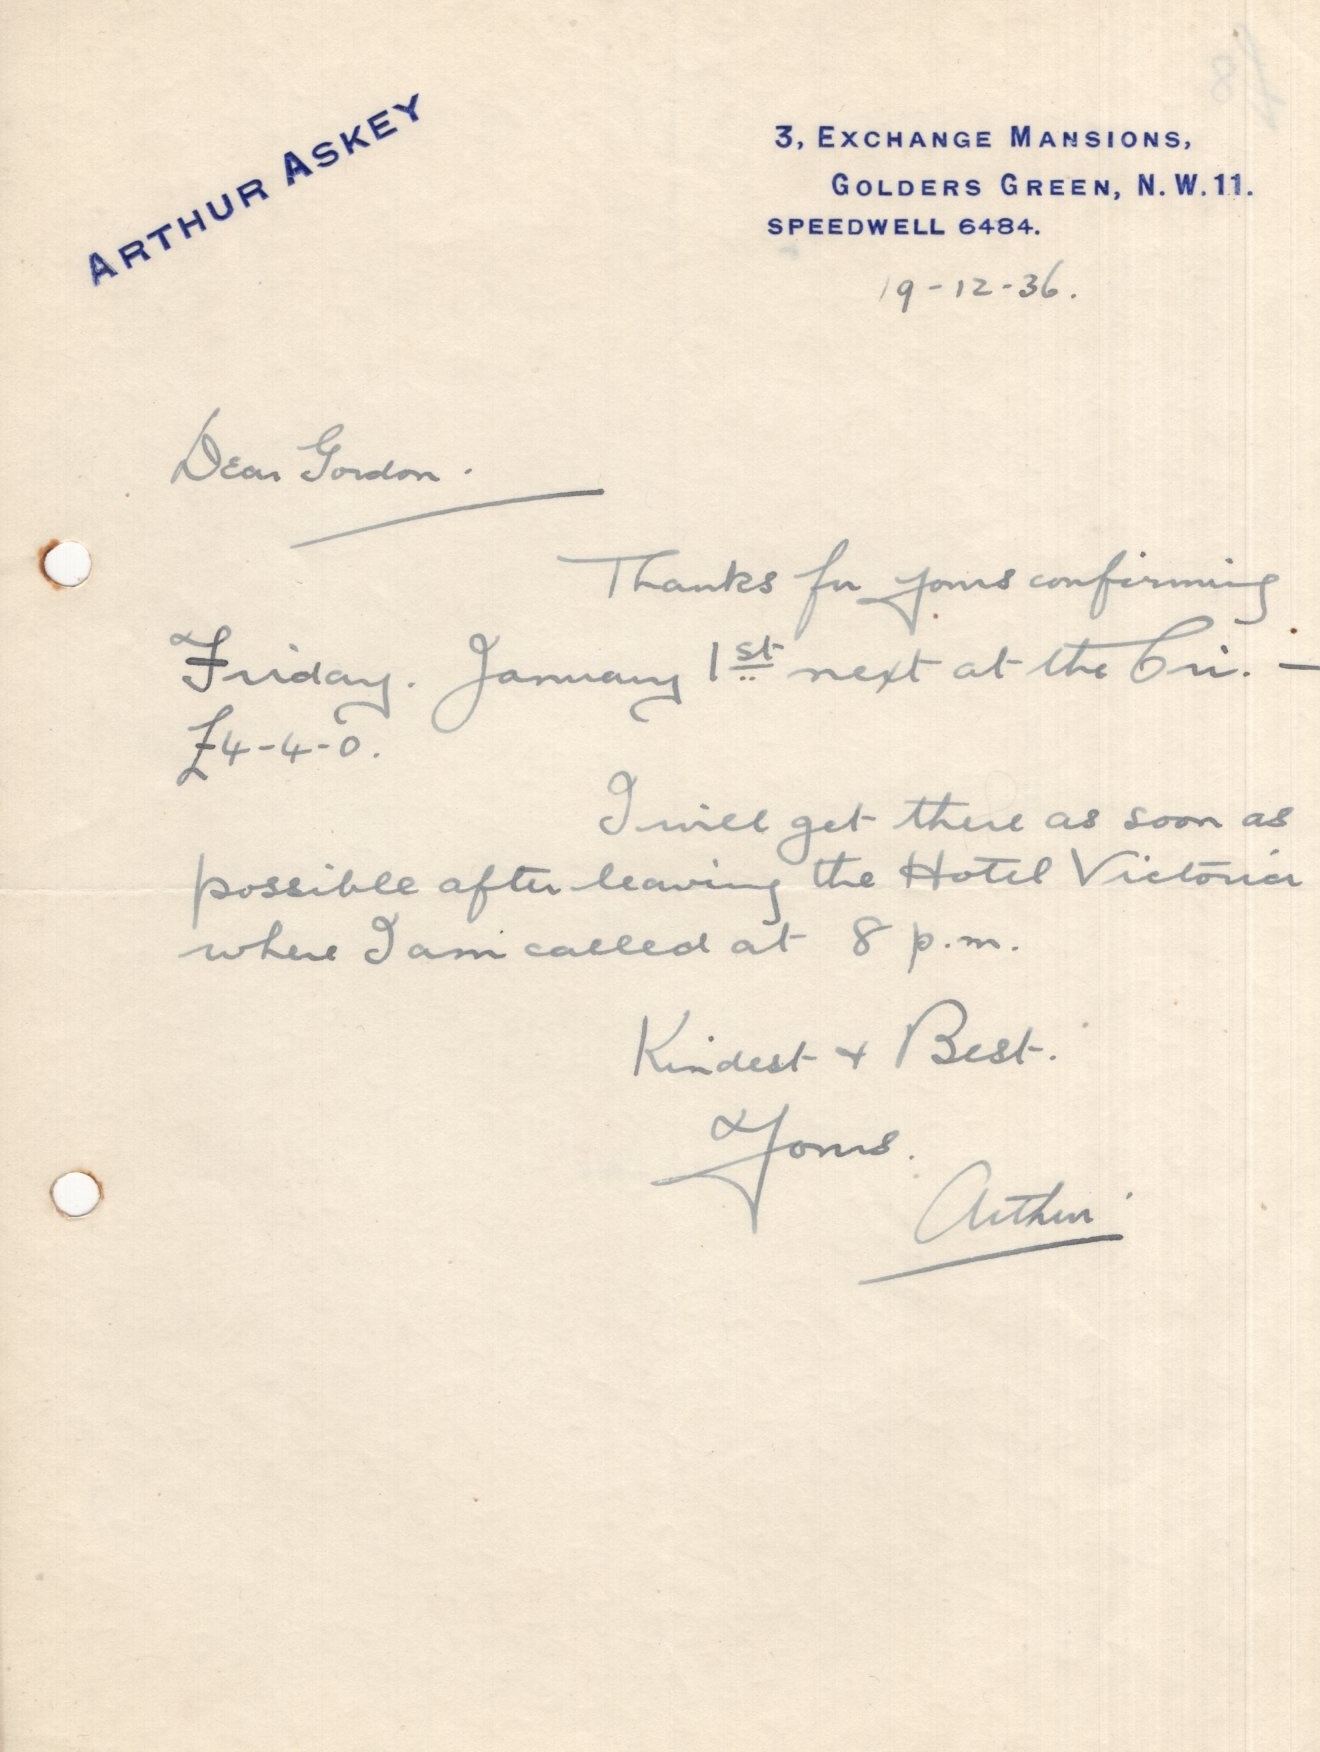 ARTHUR ASKEY
3, EXCHANGE MANSIONS,
GOLDERS GREEN, N.W.11.
SPEEDWELL 6484.
19-12-36.
Dear Gordon.
Thanks for yours confirming
Friday. January 1st next at the Cri. —
£4-4-0.
I will get there as soon as
possible after leaving the Hotel Victoria
where I am called at 8 p.m.
Kindest + Best.
Yours.
Arthur